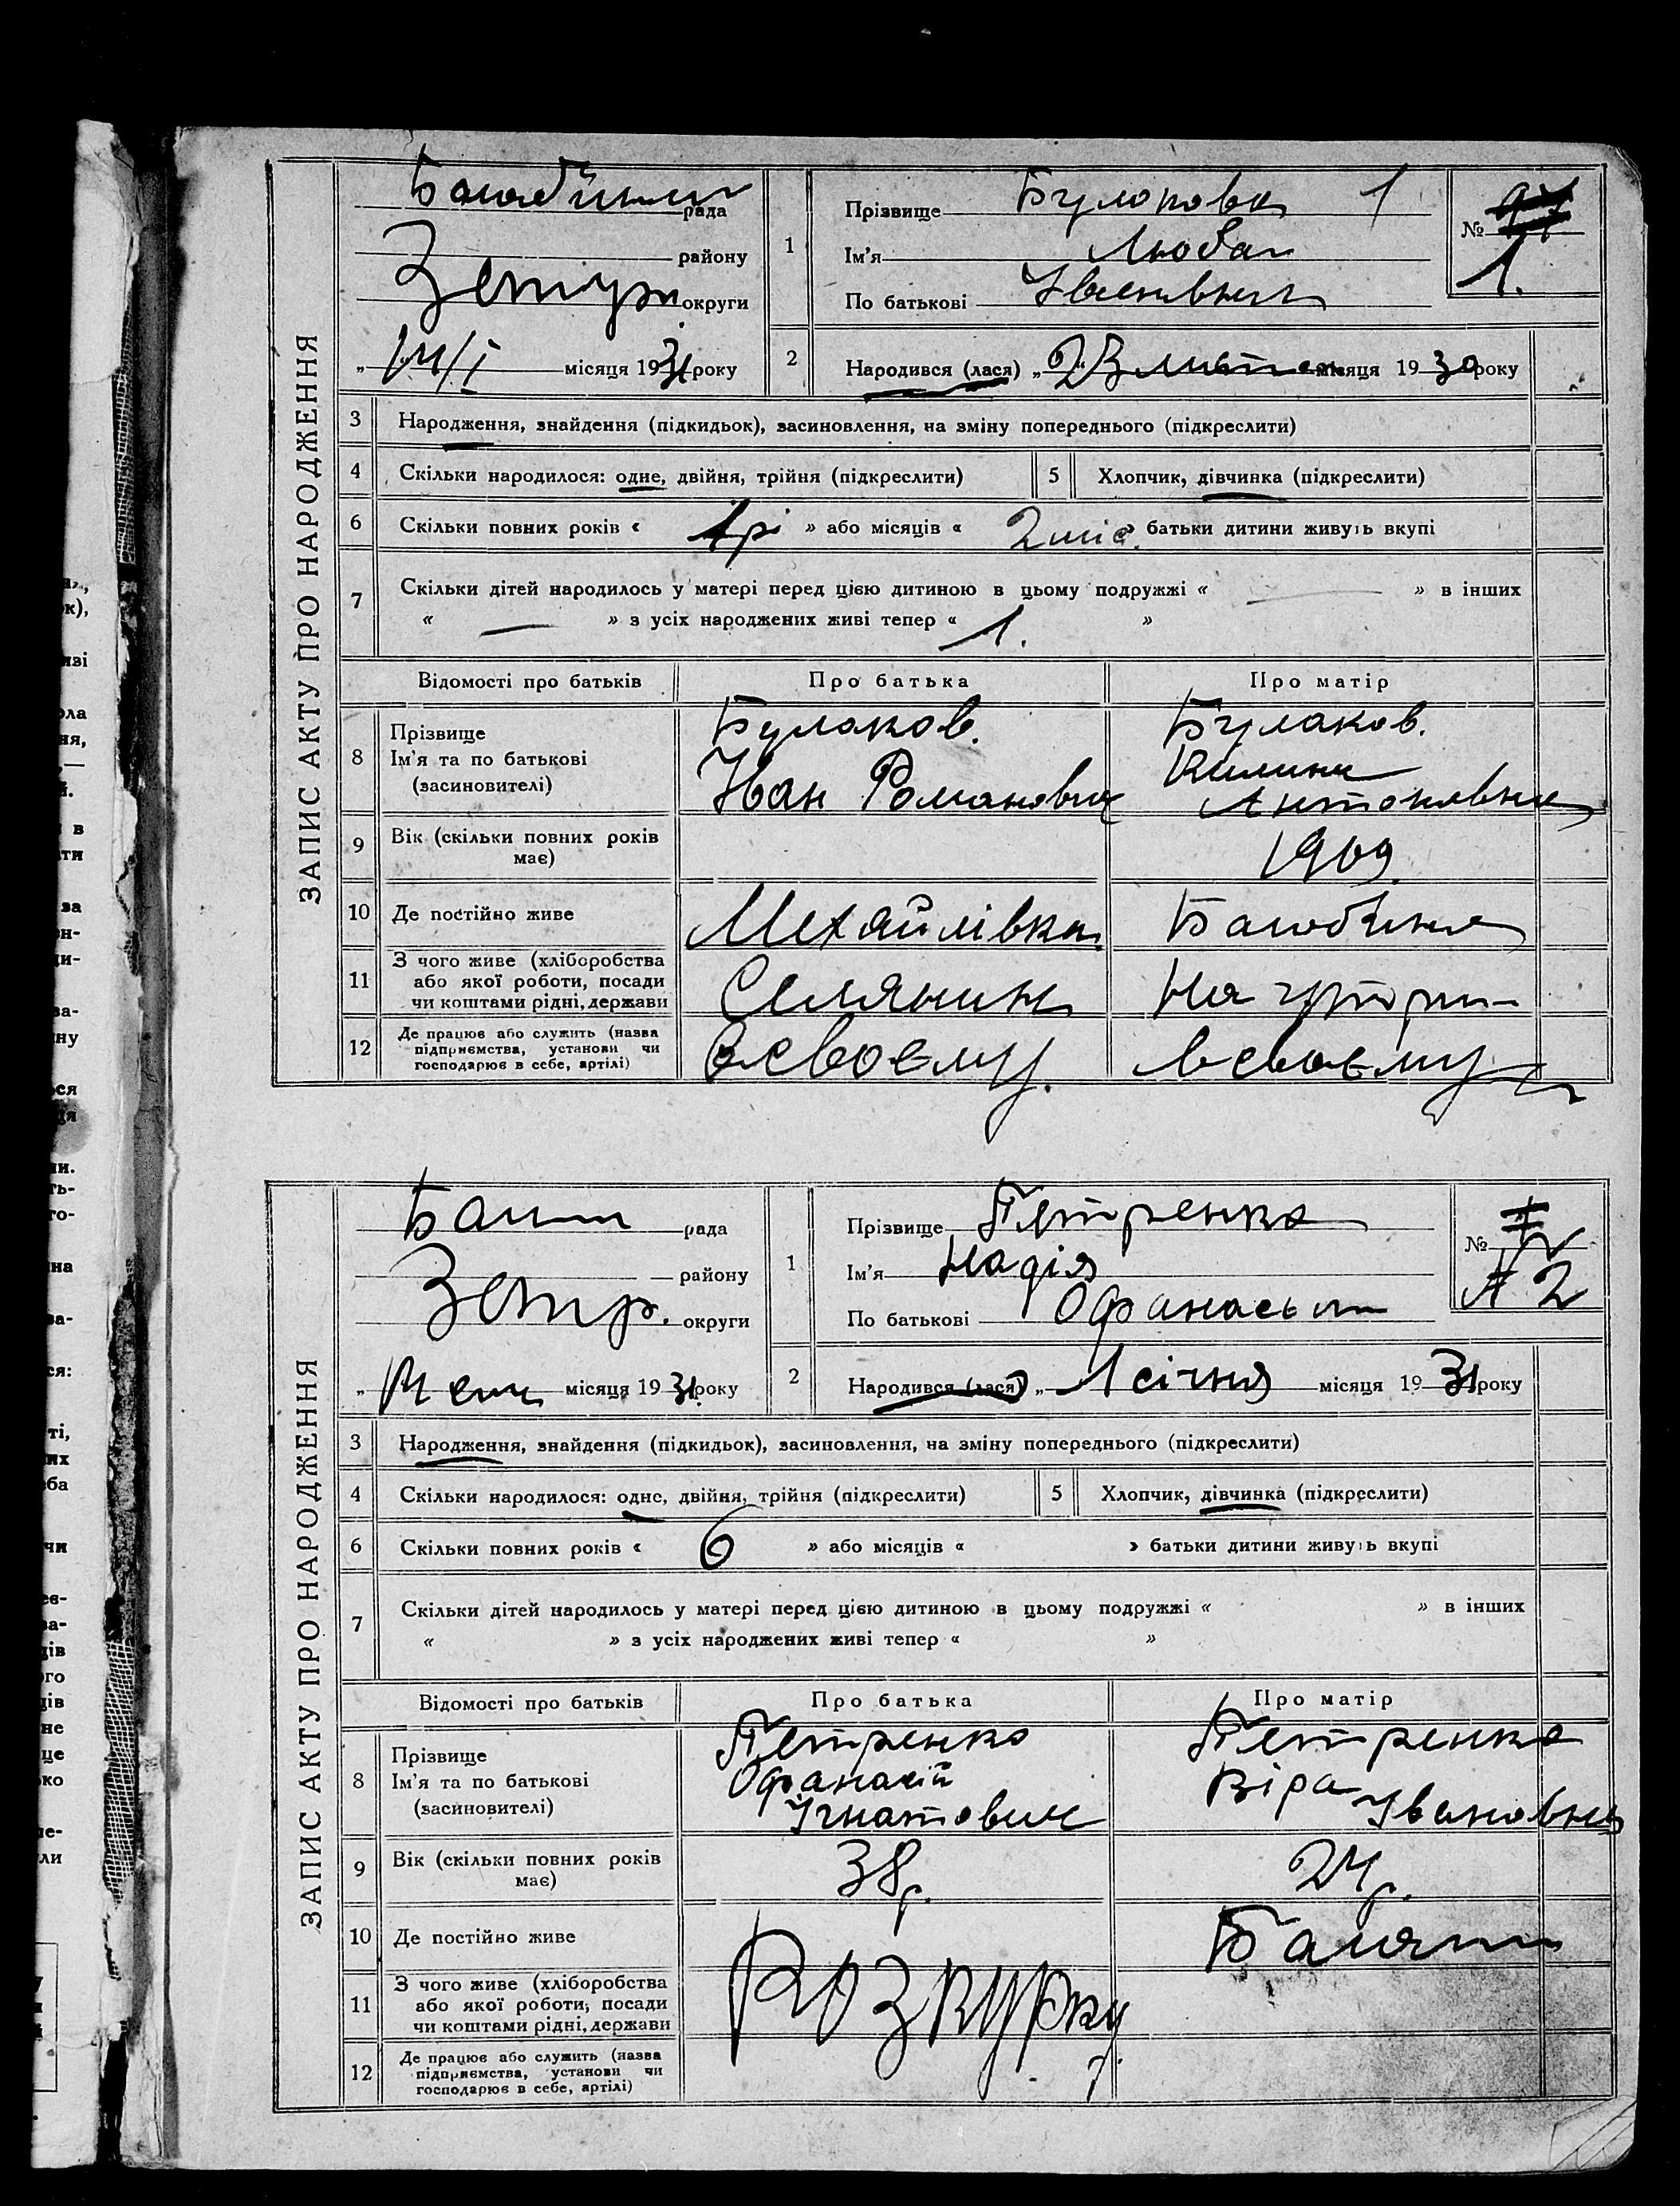 ЗАПИС АКТУ ПРО НАРОДЖЕННЯ
рада
району
округи
„ 14/I місяця 1931 року
1
Прізвище Булакова 1
Ім'я Люба
По батькові Іванівна
№ 1.
2
Народився (лася) „ 23 місяця 1930 року
3 Народження, знайдення (підкидьок), засиновлення, на зміну попереднього (підкреслити)
4 Скільки народилося: одне, двійня, трійня (підкреслити)
5 Хлопчик, дівчинка (підкреслити)
6 Скільки повних років « 1 рі » або місяців « 2 міс. » батьки дитини живуть вкупі
7 Скільки дітей народилось у матері перед цією дитиною в цьому подружжі « — » в інших
« — » з усіх народжених живі тепер « 1. »
Відомості про батьків Про батька Про матір
8 Прізвище
Ім'я та по батькові
(засиновителі)
Булаков.
Іван Романович
Булаков.
Килина
Антоновна
9 Вік (скільки повних років
має)
1909.
10 Де постійно живе Михайлівка
11 З чого живе (хліборобства
або якої роботи, посади
чи коштами рідні, держави
Селянин
На утрим
12 Де працює або служить (назва
підприємства, установи чи
господарює в себе, артілі)
В своєму.
в своєму
ЗАПИС АКТУ ПРО НАРОДЖЕННЯ
рада
району
округи
„ місяця 1931 року
1
Прізвище Петренко
Ім'я Надія
По батькові
№ 2
2
Народився (лася) „ 1 січня місяця 1931 року
3 Народження, знайдення (підкидьок), засиновлення, на зміну попереднього (підкреслити)
4 Скільки народилося: одне, двійня, трійня (підкреслити)
5 Хлопчик, дівчинка (підкреслити)
6 Скільки повних років « 6 » або місяців « » батьки дитини живуть вкупі
7 Скільки дітей народилось у матері перед цією дитиною в цьому подружжі « » в інших
« » з усіх народжених живі тепер « »
Відомості про батьків Про батька Про матір
8 Прізвище
Ім'я та по батькові
(засиновителі)
Петренко
Офанасій
Ігнатович
Петренко
Віра
Івановна
9 Вік (скільки повних років
має)
38 р.
24 р.
10 Де постійно живе
11 З чого живе (хліборобства
або якої роботи, посади
чи коштами рідні, держави
12 Де працює або служить (назва
підприємства, установи чи
господарює в себе, артілі)